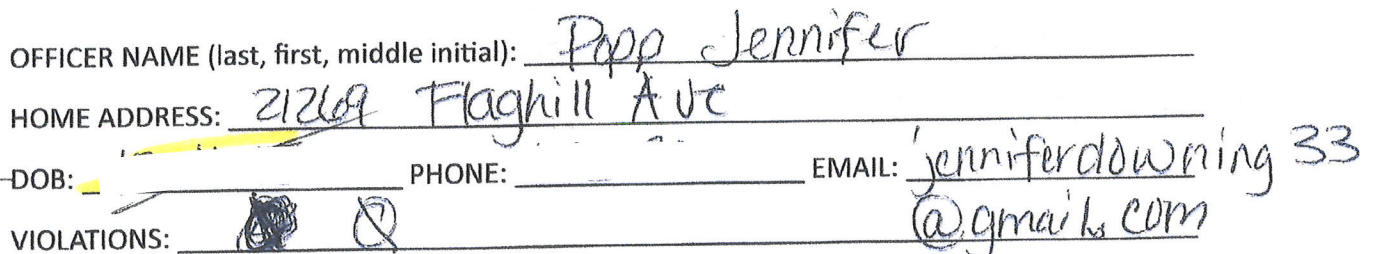 OFFICER NAME (last, first, middle initial): Popp Jennifer
HOME ADDRESS: 21269 Flaghill Ave
DOB: PHONE: EMAIL: jenniferdowning33
VIOLATIONS: Ø @gmail.com